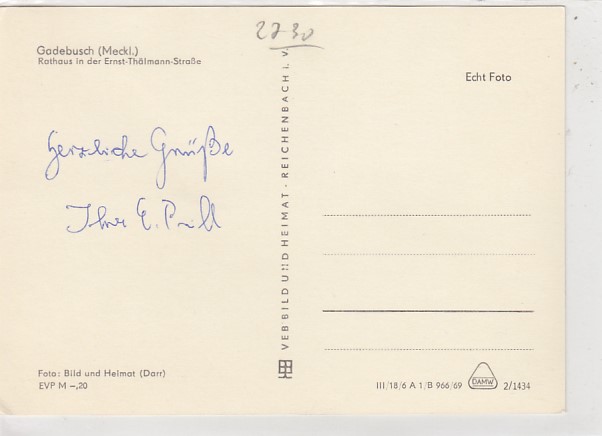 2730
Gadebusch (Meckl.)
Rathaus in der Ernst-Thälmann-Straße
Echt Foto
Herzliche Grüße
Ihr E. Prill
VEB BILD UND HEIMAT · REICHENBACH I. V.
Foto: Bild und Heimat (Darr)
EVP M –,20
III/18/6 A 1/B 966/69
DAMW
2/1434